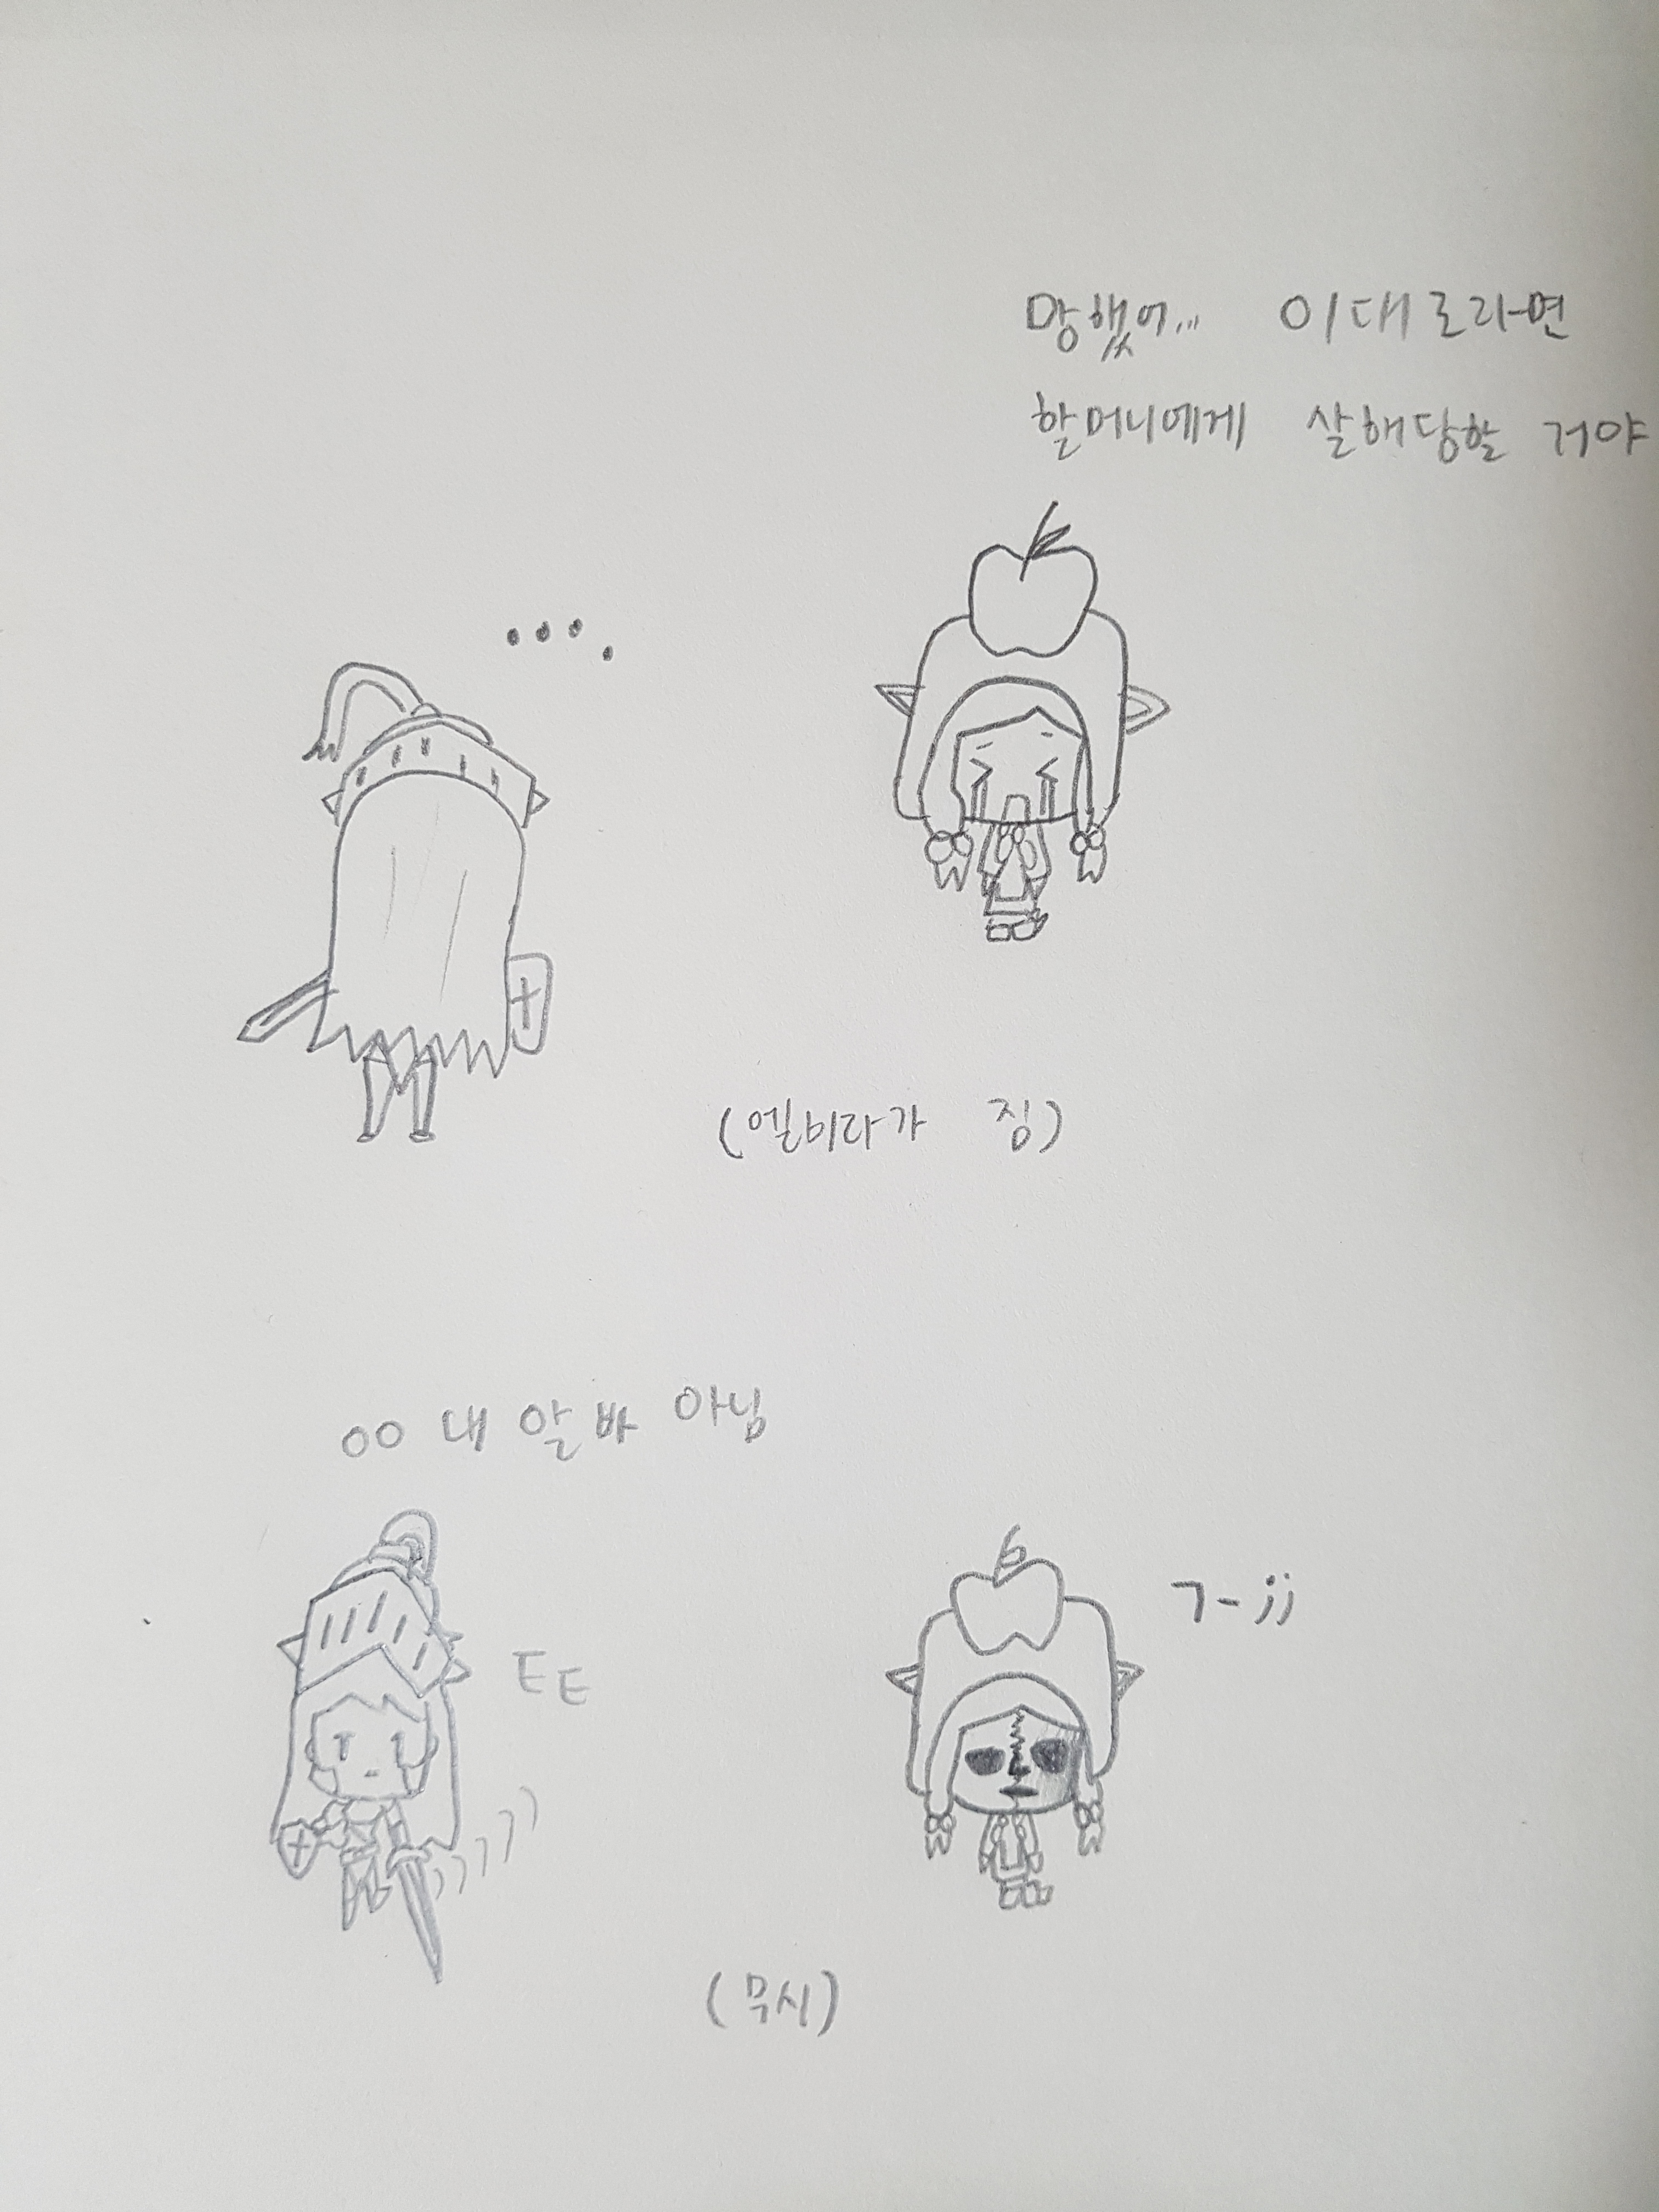 망했어... 이대로라면
할머니에게 살해당할 거야
....
(엘비라가 짐)
ㅇㅇ 내 알바 아님
ㄱ-;;
ㅌㅌ
(무시)